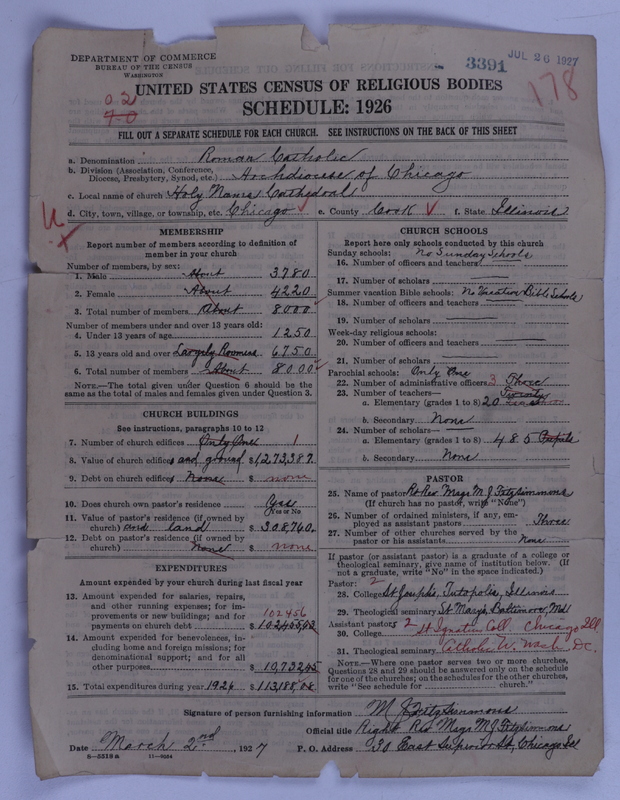 DEPARTMENT OF COMMERCE
BUREAU OF THE CENSUS
WASHINGTON
3391
JUL 26 1927
178
02
70
UNITED STATES CENSUS OF RELIGIOUS BODIES
SCHEDULE: 1926
FILL OUT A SEPARATE SCHEDULE FOR EACH CHURCH. SEE INSTRUCTIONS ON THE BACK OF THIS SHEET
a. Denomination Roman Catholic
b. Division (Association, Conference, Diocese, Presbytery, Synod, etc.) Archdiocese of Chicago
c. Local name of church Holy Name Cathedral
d. City, town, village, or township, etc. Chicago e. County Cook f. State Illinois
MEMBERSHIP
Report number of members according to definition of member in your church
Number of members, by sex:
1. Male About 3780
2. Female About 4220
3. Total number of members About 8000
Number of members under and over 13 years old:
4. Under 13 years of age 1250
5. 13 years old and over Largely Roomers 6750
6. Total number of members About 8000
NOTE.—The total given under Question 6 should be the same as the total of males and females given under Question 3.
CHURCH BUILDINGS
See instructions, paragraphs 10 to 12
7. Number of church edifices Only One 1
8. Value of church edifices and ground $1,273,387
9. Debt on church edifices None $ none
10. Does church own pastor's residence Yes
(Yes or No)
11. Value of pastor's residence (if owned by church) and land $308,760
12. Debt on pastor's residence (if owned by church) None $ none
EXPENDITURES
Amount expended by your church during last fiscal year
13. Amount expended for salaries, repairs, and other running expenses; for improvements or new buildings; and for payments on church debt 102456 $
14. Amount expended for benevolences, including home and foreign missions; for denominational support; and for all other purposes
15. Total expenditures during year 1926 $113,188.08
CHURCH SCHOOLS
Report here only schools conducted by this church
Sunday schools: No Sunday Schools
16. Number of officers and teachers
17. Number of scholars
Summer vacation Bible schools: No Vacation Bible Schools
18. Number of officers and teachers
19. Number of scholars
Week-day religious schools:
20. Number of officers and teachers
21. Number of scholars
Parochial schools: Only One
22. Number of administrative officers 3 Three
23. Number of teachers— Twenty
a. Elementary (grades 1 to 8) 20
b. Secondary None
24. Number of scholars—
a. Elementary (grades 1 to 8) 485 Pupils
b. Secondary None
PASTOR
25. Name of pastor Rt Rev Msgr M J Fitzsimmons
(If church has no pastor, write "None")
26. Number of ordained ministers, if any, employed as assistant pastors Three
27. Number of other churches served by the pastor or his assistants None
If pastor (or assistant pastor) is a graduate of a college or theological seminary, give name of institution below. (If not a graduate, write "No" in the space indicated.)
Pastor: 2
28. College St Josephs, Tutopolis, Illinois
29. Theological seminary St Marys, Baltimore, Md
Assistant pastor: 2
30. College St Ignatius Coll. Chicago Ill.
31. Theological seminary Catholic U. Wash. D.C.
NOTE.—Where one pastor serves two or more churches, Questions 28 and 29 should be answered only on the schedule for one of the churches; on the schedules for the other churches, write "See schedule for church."
Signature of person furnishing information M J Fitzsimmons
Official title Right Rev Msgr M J Fitzsimmons
Date March 2nd, 1927 P. O. Address 730 East Superior St, Chicago Ill
8—5518a 11—9084